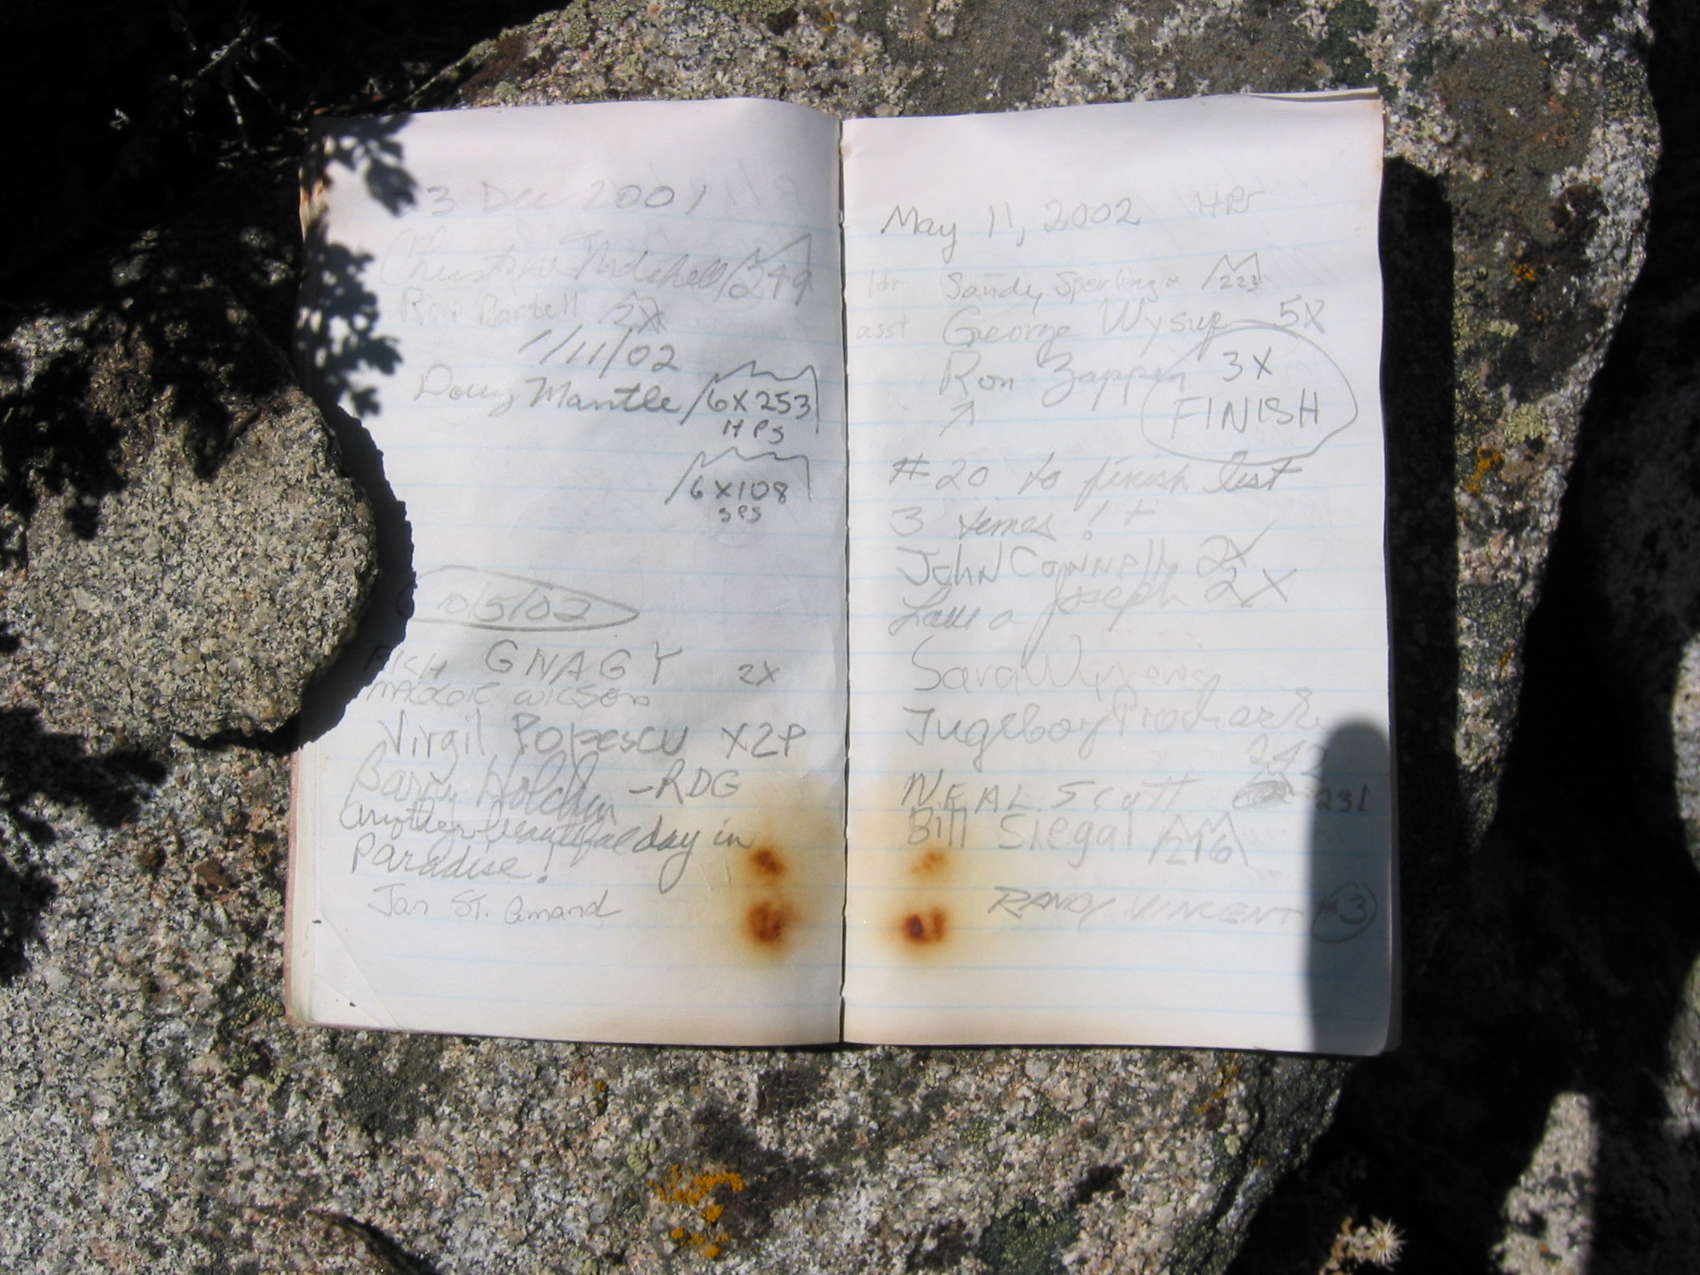 3 Dec 2001
Christine Mitchell 249
Ron Bartell 2X
1/11/02
Doug Mantle 6X253
HPS
6X108
SPS
5/02
RICH GNAGY 2X
MAGGIE WILSON
Virgil Popescu X2P
Barry Holchin -RDG
Another beautiful day in
Paradise!
Jan St. Amand
May 11, 2002 HPS
ldr Sandy Sperling 223
asst George Wysup 5X
Ron Zappen 3X
FINISH
#20 to finish list
3 times!
John Connelly 2X
Laura Joseph 2X
Sara Wyrens
Ingeborg Prochazka
242
NEAL Scott 231
Bill Siegal 216
RANDY VINCENT #3